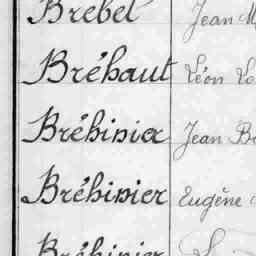 Brebel Jean
Bréhaut Léon
Bréhinier Jean
Bréhinier Eugène
Bréhinier